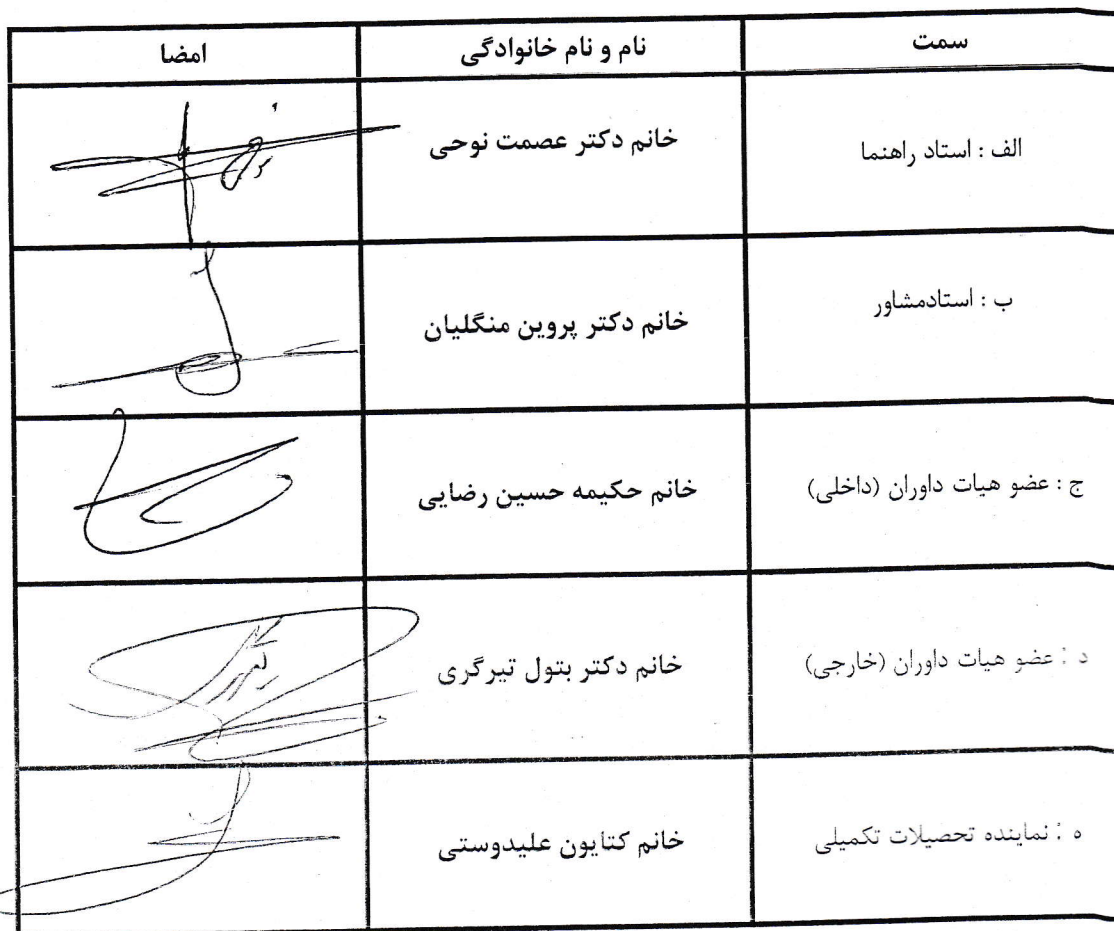 سمت نام و نام خانوادگی امضا
الف : استاد راهنما خانم دکتر عصمت نوحی
ب : استادمشاور خانم دکتر پروین منگلیان
ج : عضو هیات داوران (داخلی) خانم حکیمه حسین رضایی
د : عضو هیات داوران (خارجی) خانم دکتر بتول تیرگری
ه : نماینده تحصیلات تکمیلی خانم کتایون علیدوستی